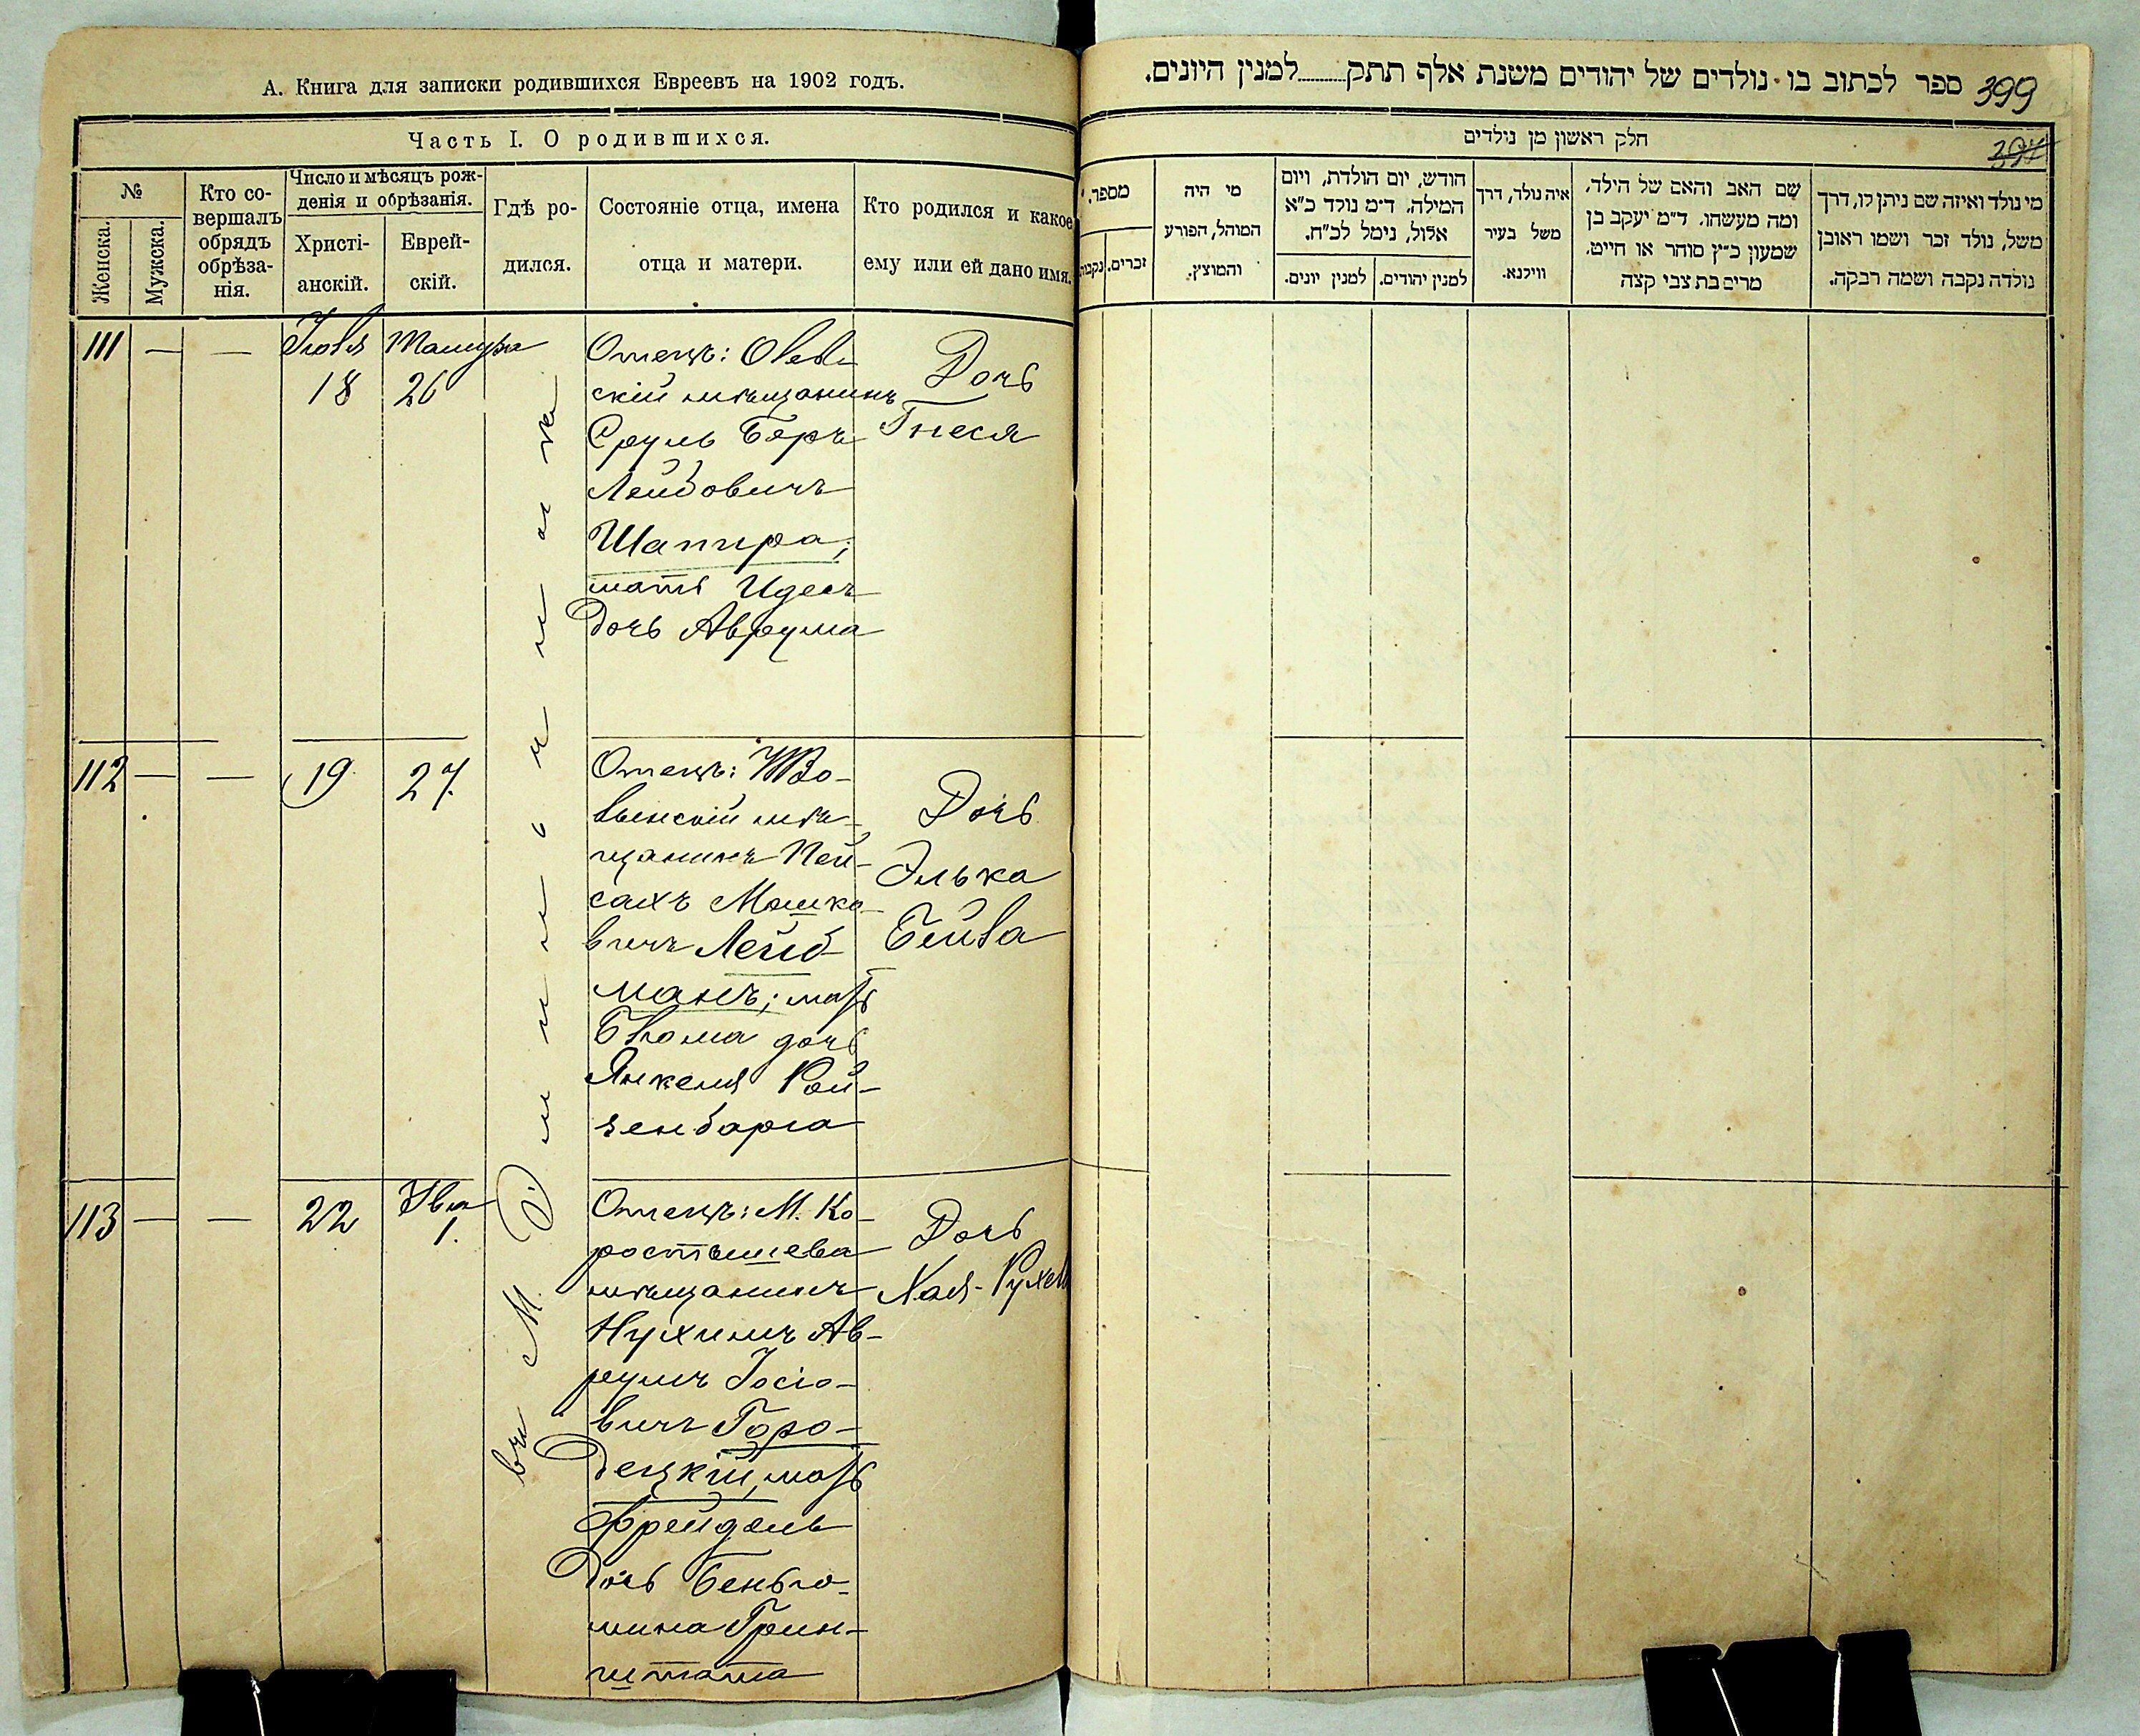 А. Книга для записки родившихся Евреевъ на 1902 годъ.
Часть I. О родившихся.
№
Женска.
Мужска.
Кто со-
вершалъ
обрядъ
обрѣза-
нія.
Число и мѣсяцъ рож-
денія и обрѣзанія.
Христі-
анскій.
Еврей-
скій.
Гдѣ ро-
дился.
Состояніе отца, имена
отца и матери.
Кто родился и какое
ему или ей дано имя.
111 — — Іюля 18 Тамуза 26
Отецъ:
скій мѣщанинъ
Сруль Беръ
Лейбовичъ
Шапира;
мать Идесъ
дочь Аврума
Дочь
Гнеся
112 — — 19 27.
Отецъ:
мѣ-
щанинъ Пей-
сахъ Мошко-
вичъ Лейб-
манъ; мать
Блюма дочь
Янкеля Рой-
зенбарга
Дочь
Элька
Бейла
113 — — 22 Ява 1.
Отецъ: М. Ко-
ростышева
мѣщанинъ
Нухимъ Ав-
румъ Іосіо-
вичъ Горо-
децкій, мать
Фрейдель
дочь Беньіо-
мина Грин-
штата
Дочь
Хая-Рухель
въ М.
ספר לכתוב בו נולדים של יהודים משנת אלף תתק......למנין היונים.
399
397
חלק ראשון מן נילדים
מספר.
נקבות
זכרים.
מי היה
המוהל, הפורע
והמוצץ.
חודש, יום הולדת, ויום
המילה. ד״מ נולד כ״א
אלול, נימל לכ״ח.
למנין יונים.
למנין יהודים.
איה נולד, דרך
משל בעיר
ווילנא.
שם האב והאם של הילד,
ומה מעשהו. ד״מ יעקב בן
שמעון כ״ץ סוחר או חייט.
מרים בת צבי קצה
מי נולד ואיזה שם ניתן לו, דרך
משל, נולד זכר ושמו ראובן
נולדה נקבה ושמה רבקה.